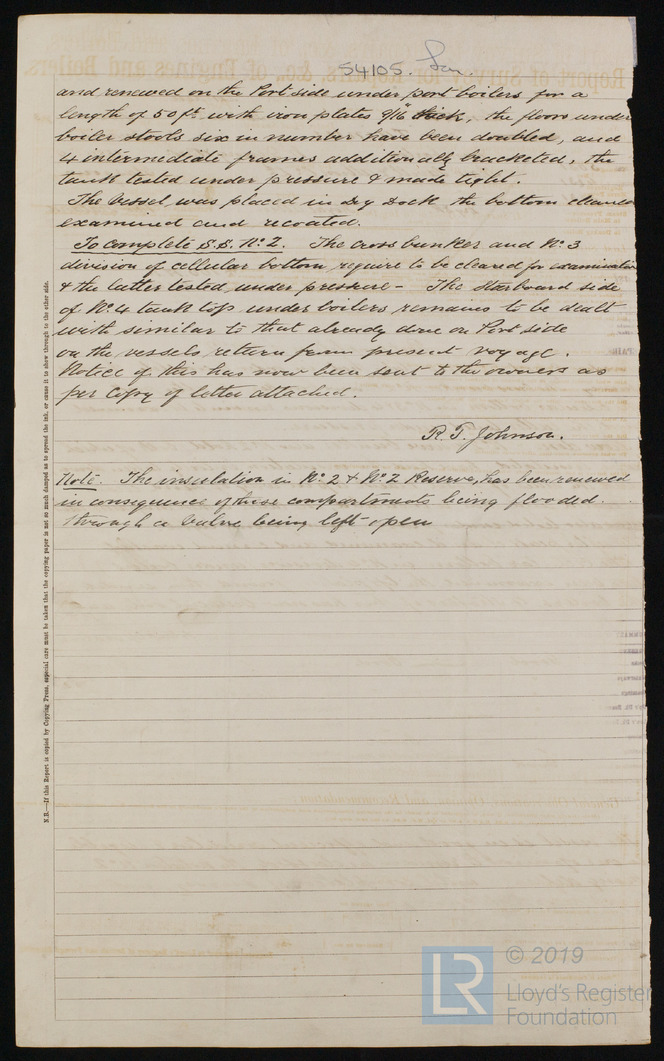 54105. Lon.
and renewed on the Port side under port boilers for a
length of 50 ft. with iron plates 9/16" thick, the floors under
boiler stools six in number have been doubled, and
4 intermediate frames additionally bracketed, the
tank tested under pressure & made tight.
The Vessel was placed in Dry Dock the bottom cleaned
examined and recoated.
To complete S.S. No. 2. The cross bunker and No. 3
division of cellular bottom require to be cleared for examination
& the latter tested under pressure - The Starboard side
of No. 4 tank top under boilers remains to be dealt
with similar to that already done on Port side
on the vessels return from present voyage.
Notice of this has now been sent to the owners as
per Copy of letter attached.
R. T. Johnson.
Note. The insulation in No. 2 & No. 2 Reserve, has been renewed
in consequence of these compartments being flooded
through a valve being left open
N.B.—If this Report is copied by Copying Press, especial care must be taken that the copying paper is not so much damped as to spread the ink, or cause it to show through to the other side.
LR
© 2019
Lloyd's Register
Foundation